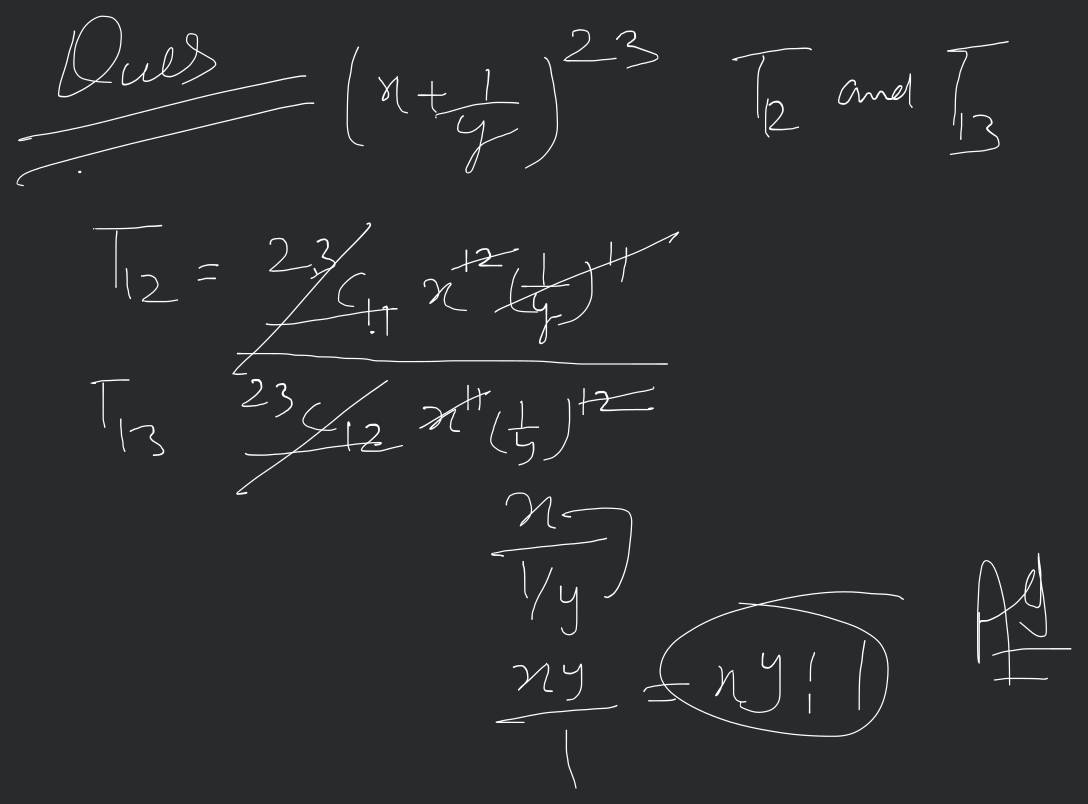 Ques (x + 1/y)^23 T_12 and T_13
T_12 = 23C_11 x^12 (1/y)^11
T_13 23C_12 x^11 (1/y)^12
x
1/y
xy/1 = xy : 1 Ay